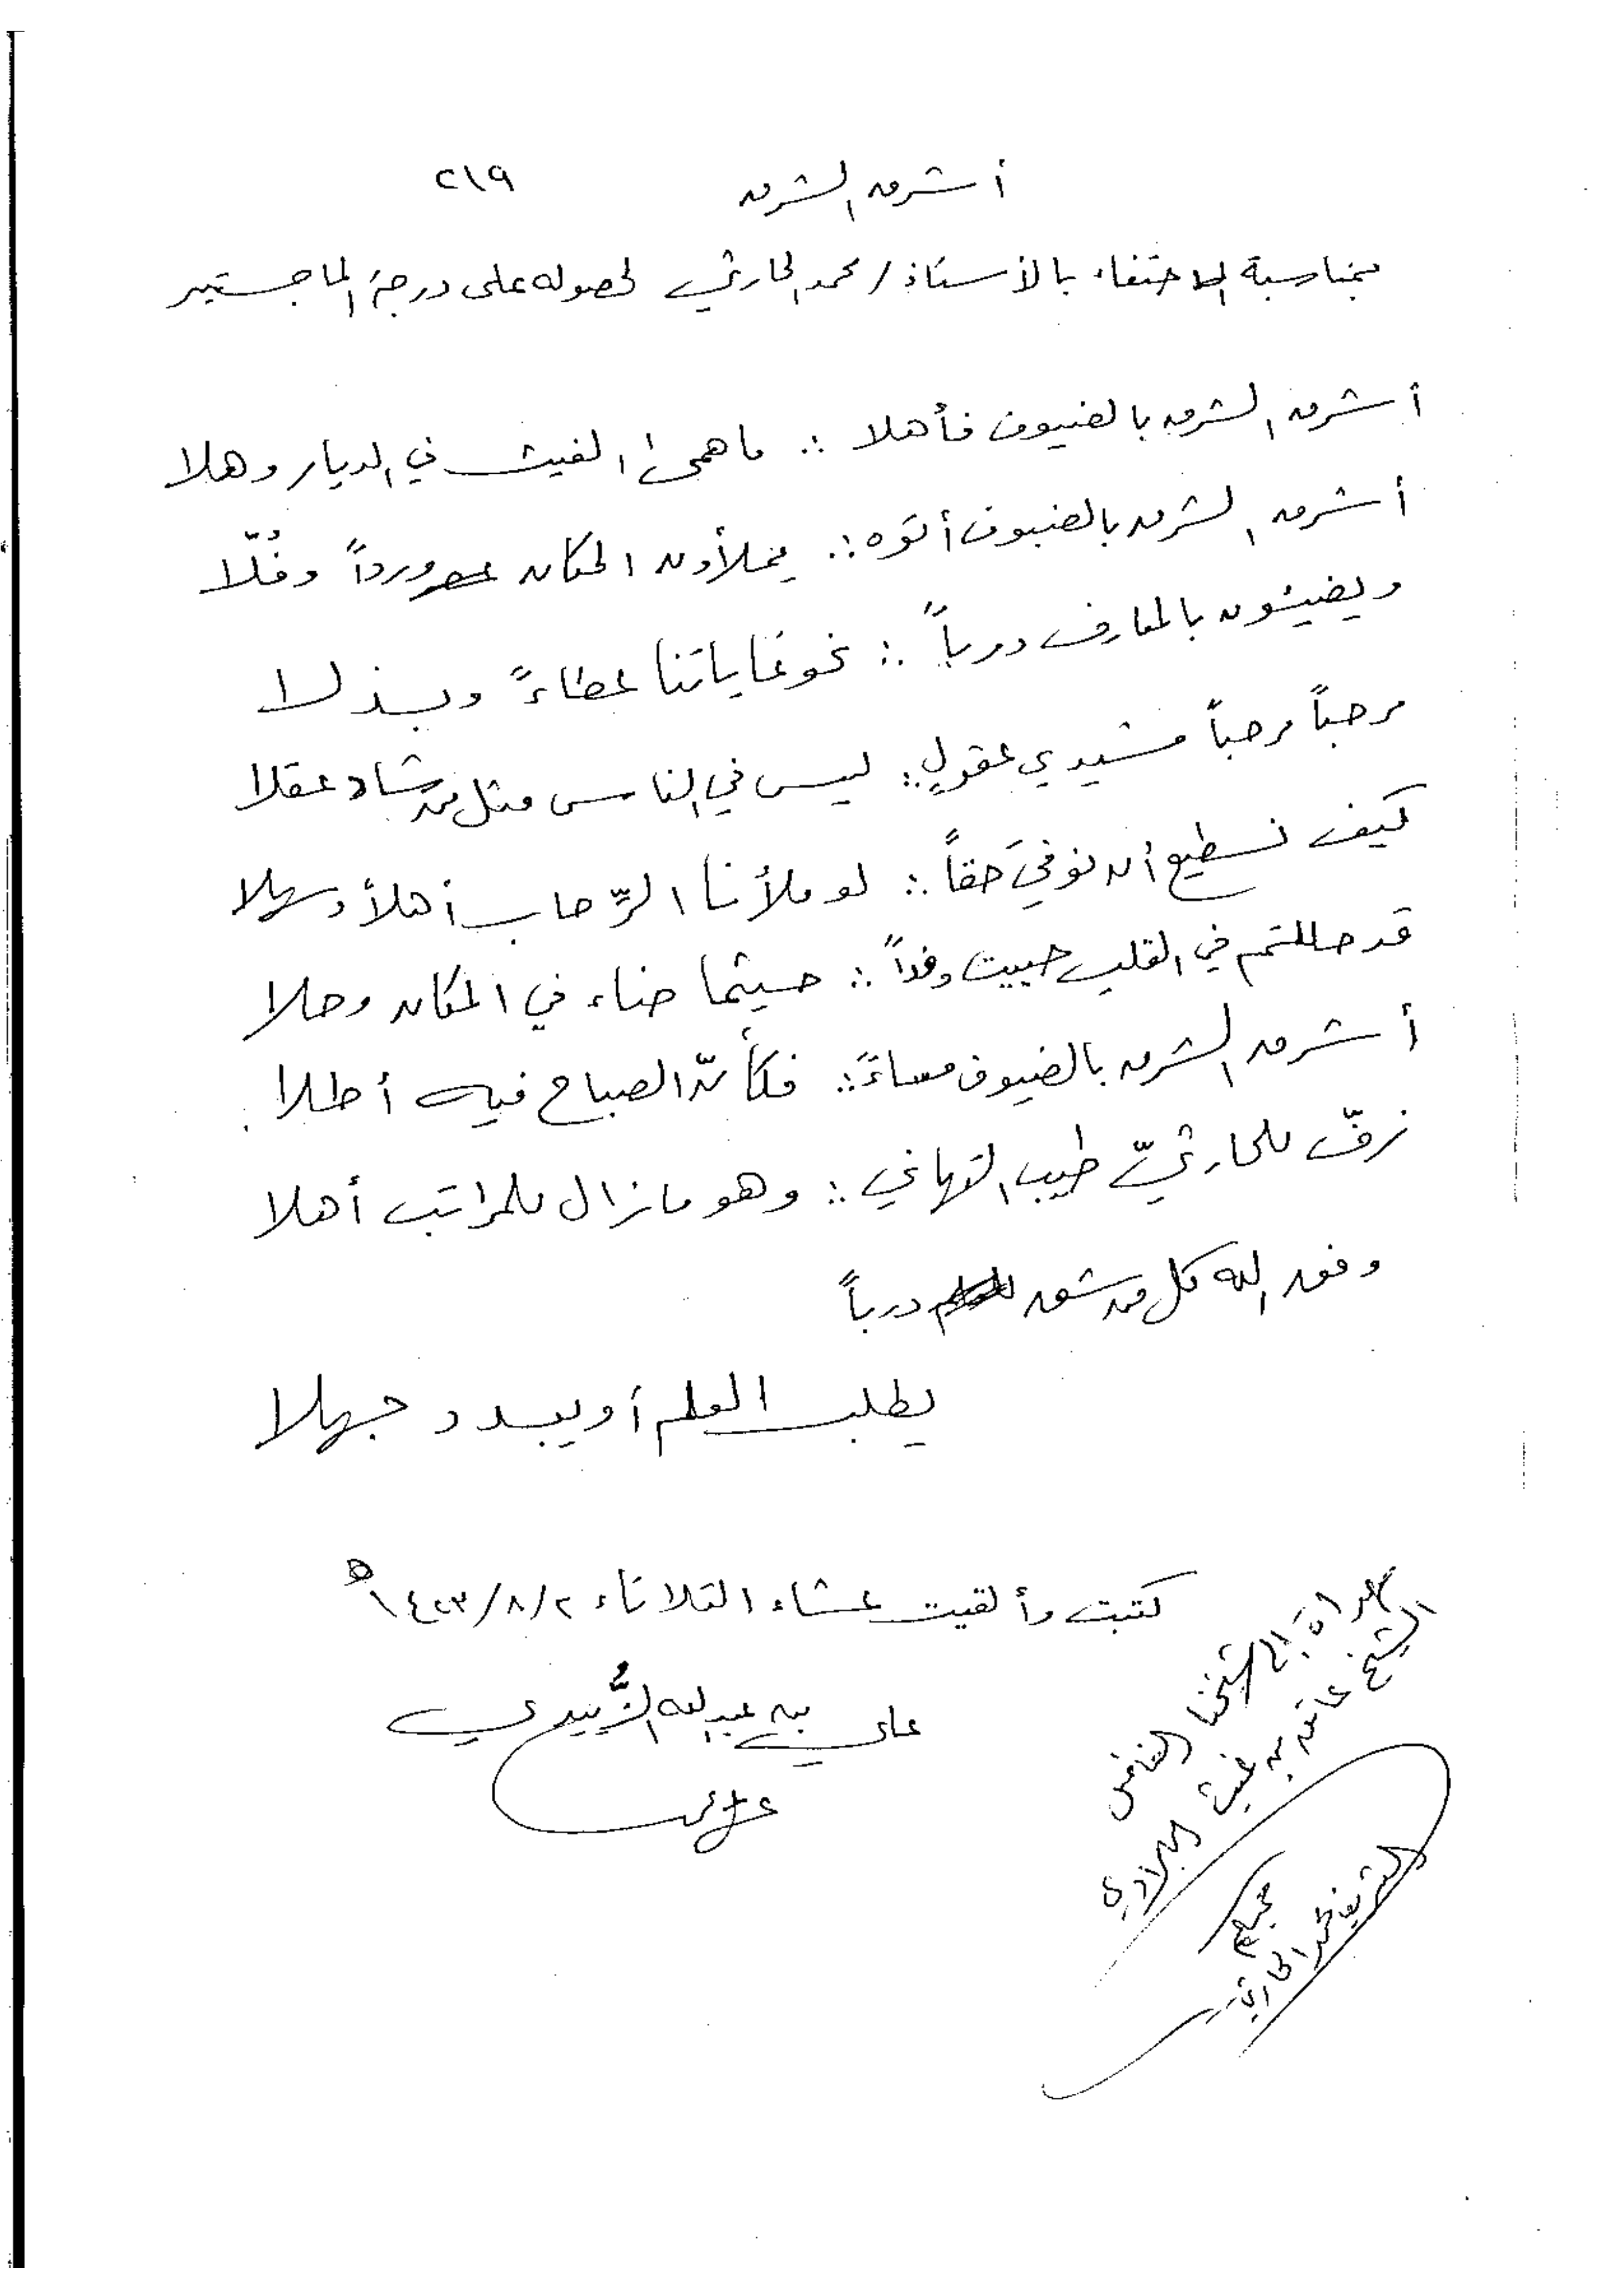 أشرق الشرق ٢١٩
بمناسبة الاحتفاء بالأستاذ / محمد الحارثي لحصوله على درجة الماجستير
أشرق الشرق بالضيوف فأهلا ∴ ما همى الغيث في الديار وهلا
أشرق الشرق بالضيوف أتوه ∴ يملأون المكان ورداً وفُلّا
ويضيئون بالمعارف درباً ∴ نحو غاياتنا عطاءً وبذلا
مرحباً مرحباً مشيدي عقولٍ ∴ ليس في الناس مثل من شاد عقلا
كيف نسطيع أن نوفيَ حقاً ∴ لو ملأنا الرِّحاب أهلاً وسهلا
قد حللتم في القلب حييت وفداً ∴ حيثما ضاء في المكان وحلا
أشرق الشرق بالضيوف مساءً ∴ فكأنّ الصباح فيه أطلا
زفّ للحارثيّ طيب التهاني ∴ وهو ما زال للمراتب أهلا
وفق الله كل من شق درباً
يطلب العلم أو يبدد جهلا
كتبت وألقيت عشاء الثلاثاء ١٤٢٣/٨/٢ ھ
علي بن عبدالله الزُّبيدي
شيخنا الفاضل
الشيخ عاتق بن غيث البلادي
محبكم
الشريف محمد الحارثي